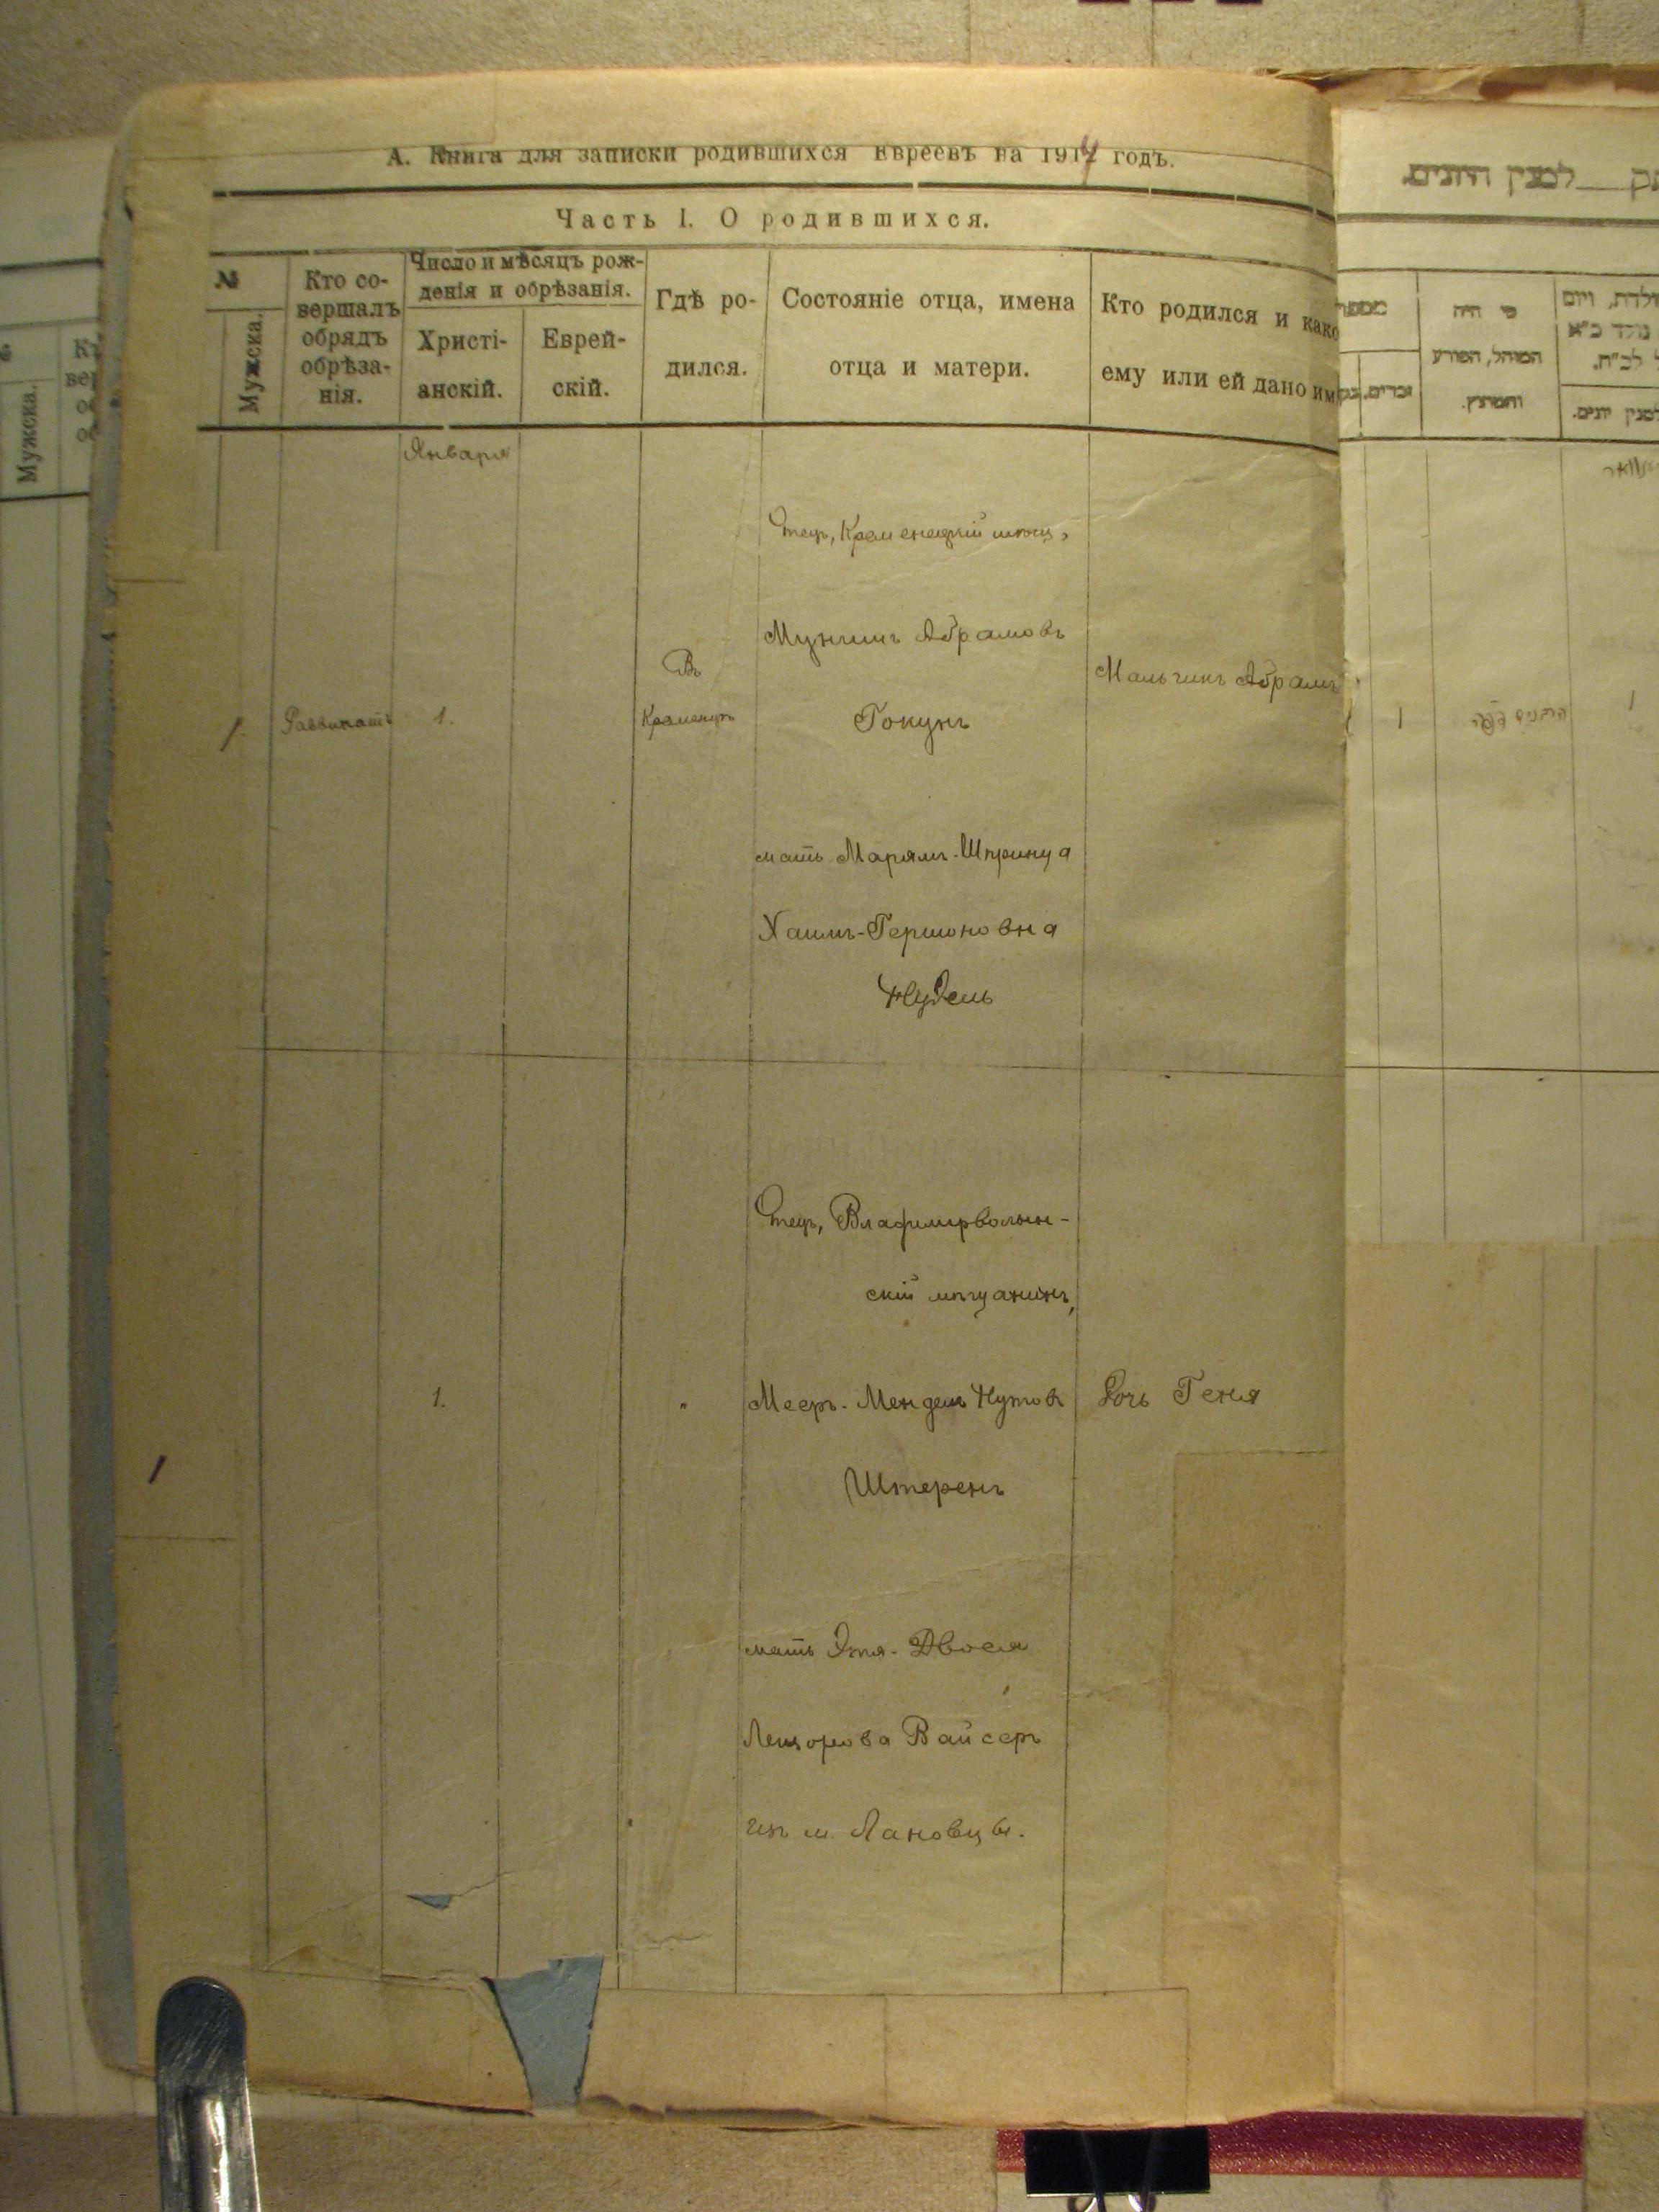 А. Книга для записки родившихся Евреевъ на 1914 годъ.
Часть I. О родившихся.
№
Мужска.
Кто со-
вершалъ
обрядъ
обрѣза-
нія.
Число и мѣсяцъ рож-
денія и обрѣзанія.
Христі-
анскій.
Еврей-
скій.
Гдѣ ро-
дился.
Состояніе отца, имена
отца и матери.
Кто родился и како
ему или ей дано им
Января
1.
1.
Въ
Кременцѣ
Отецъ, Кременецкій мѣщ,
Абрамовъ
Гокунъ
мать Марямъ-Шпринца
Хаимъ-Гершоновна
Нудель
Мальчикъ Абрамъ
1
1.
"
Отецъ, Владимирволын-
скій мѣщанинъ,
Мееръ-Мендель Нутовъ
Штеренъ
мать Этя-Двося
Вайсеръ
изъ м. Лановцы.
Дочь Геня
Мужска.
למנין היונים.
מספר
זכרים.
מי היה
המוהל, הפורע
והמוצץ.